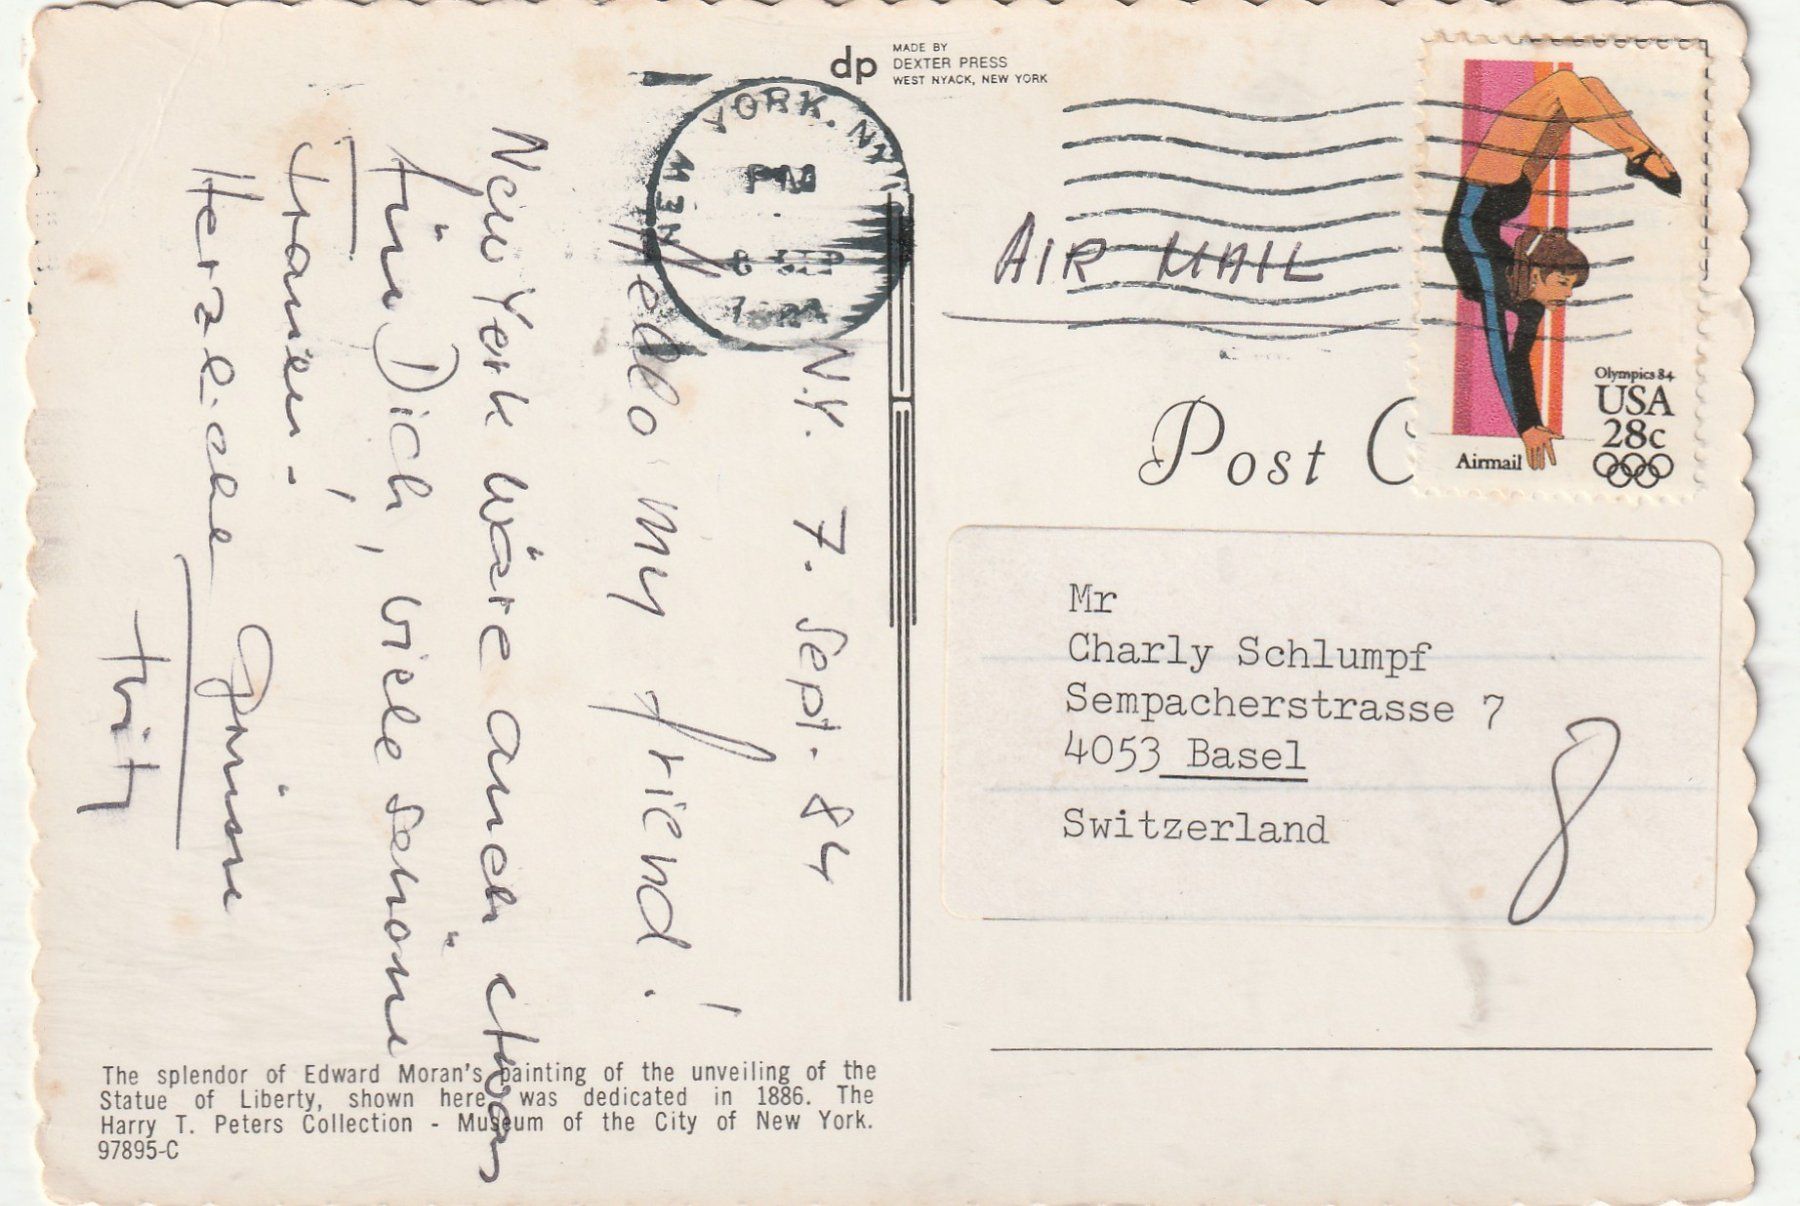 dp
MADE BY
DEXTER PRESS
WEST NYACK, NEW YORK
NEW YORK, NY
PM
8 SEP
N.Y. 7. Sept. 84
Hello my friend!
New York wäre auch etwas
für Dich, viele schöne
Frauen!-
Herzliche Grüsse
Fritz
AIR MAIL
Post C
Olympics 84
USA
28c
Airmail
Mr
Charly Schlumpf
Sempacherstrasse 7
4053 Basel
Switzerland
8
The splendor of Edward Moran's painting of the unveiling of the
Statue of Liberty, shown here, was dedicated in 1886. The
Harry T. Peters Collection - Museum of the City of New York.
97895-C